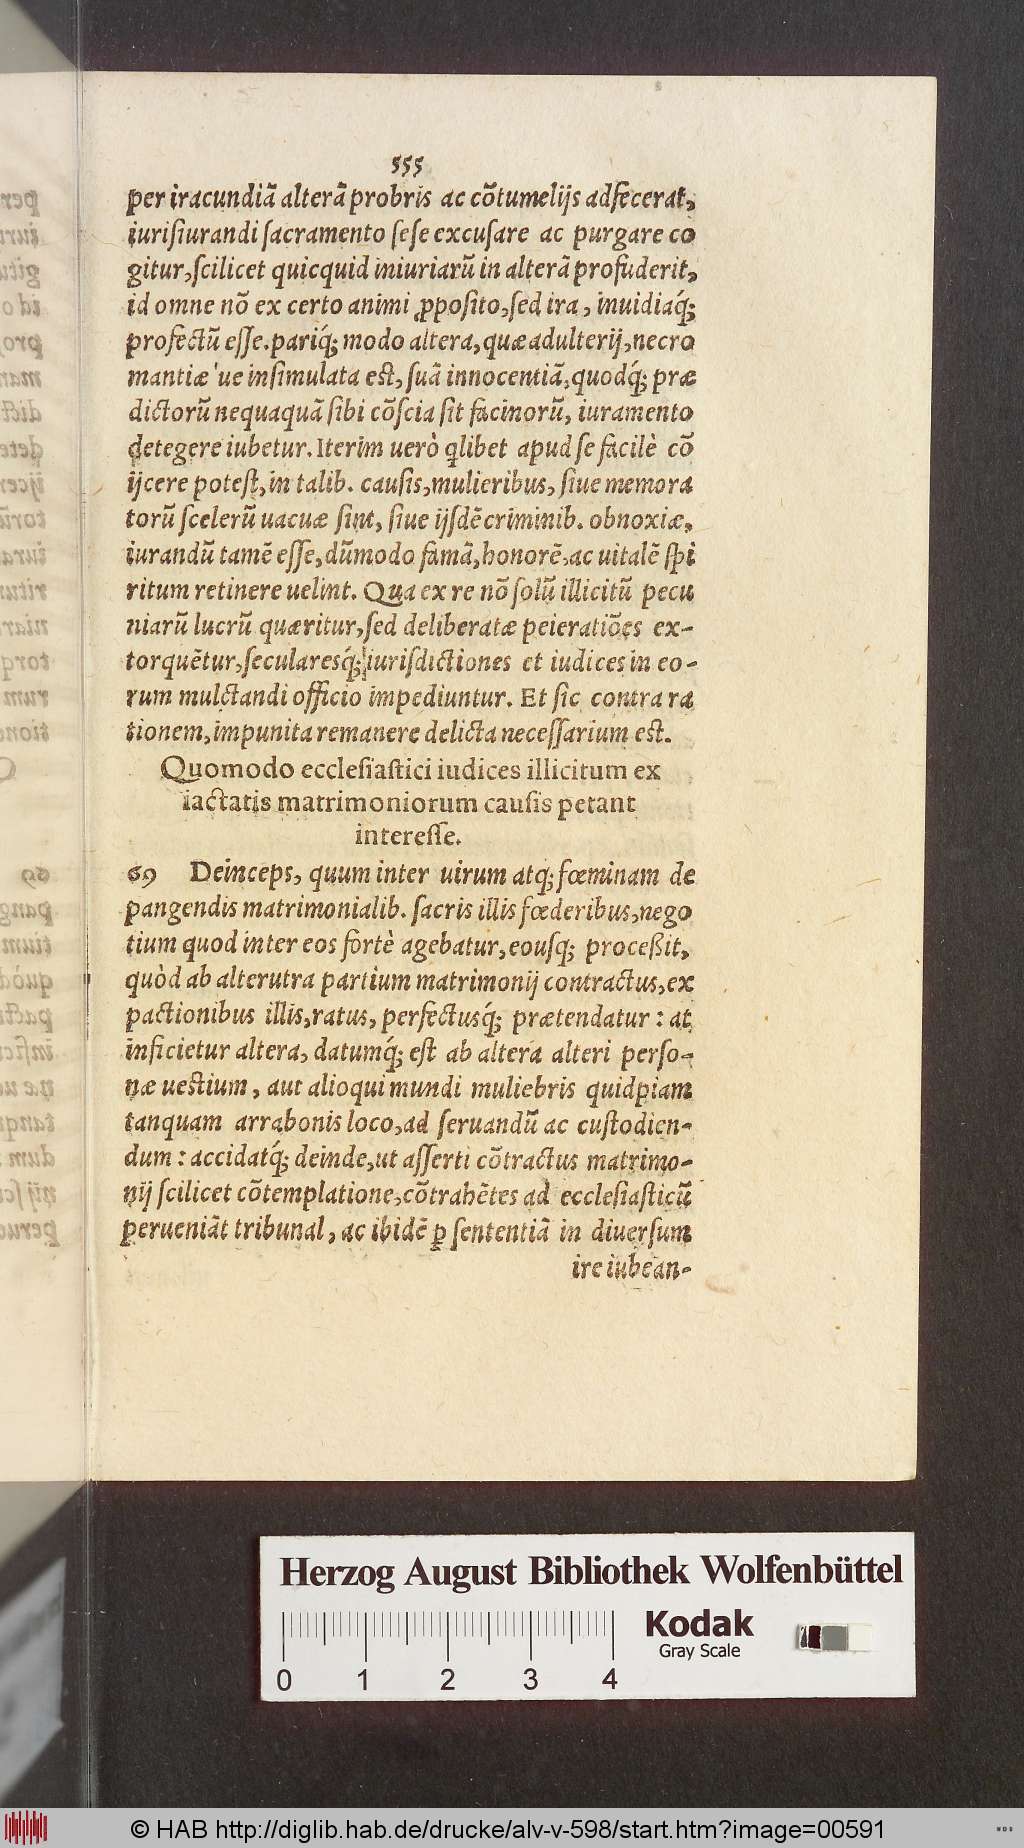 555
per iracundiã alterã probris ac cõtumelijs adfecerat,
iurisiurandi sacramento sese excusare ac purgare co
gitur, scilicet quicquid iniuriarũ in alterã profuderit,
id omne nõ ex certo animi ꝓposito, sed ira, inuidiaq́;
profectũ esse. pariq́; modo altera, quæ adulterij, necro
mantiæ 've insimulata est, suã innocentiã, quodq́; præ
dictorũ nequaquã sibi cõscia sit facinorũ, iuramento
detegere iubetur. Iterim uerò qlibet apud se facilè cõ
ijcere potest, in talib. causis, mulieribus, siue memora
torũ scelerũ uacuæ sint, siue ijsdẽ criminib. obnoxiæ,
iurandũ tamẽ esse, dũmodo famã, honorẽ, ac uitalẽ spi
ritum retinere uelint. Qua ex re nõ solũ illicitũ pecu
niarũ lucrũ quæritur, sed deliberatæ peieratiões ex-
torquẽtur, secularesq́; iurisdictiones et iudices in eo-
rum mulctandi officio impediuntur. Et sic contra ra
tionem, impunita remanere delicta necessarium est.
Quomodo ecclesiastici iudices illicitum ex
iactatis matrimoniorum causis petant
interesse.
69 Deinceps, quum inter uirum atq; fœminam de
pangendis matrimonialib. sacris illis fœderibus, nego
tium quod inter eos fortè agebatur, eousq; processit,
quòd ab alterutra partium matrimonij contractus, ex
pactionibus illis, ratus, perfectusq́; prætendatur : at
inficietur altera, datumq́; est ab altera alteri perso-
næ uestium, aut alioqui mundi muliebris quidpiam
tanquam arrabonis loco, ad seruandũ ac custodien-
dum : accidatq́; deinde, ut asserti cõtractus matrimo-
nij scilicet cõtemplatione, cõtrahẽtes ad ecclesiasticũ
perueniãt tribunal, ac ibidẽ ꝑ sententiã in diuersum
ire iubean-
Herzog August Bibliothek Wolfenbüttel
0 1 2 3 4
Kodak
Gray Scale
© HAB http://diglib.hab.de/drucke/alv-v-598/start.htm?image=00591